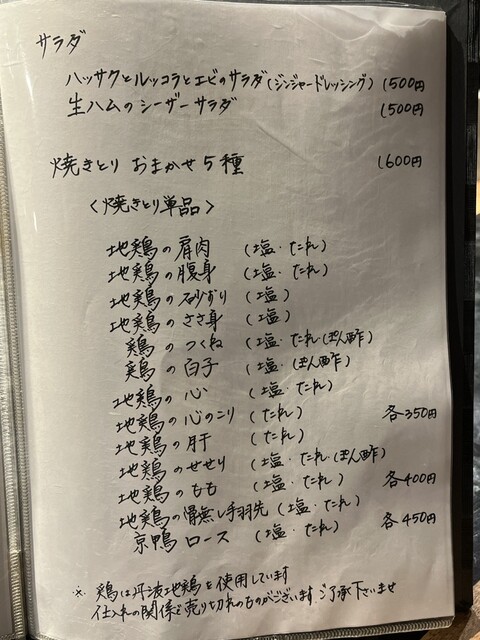 サラダ
ハッサクとルッコラとエビのサラダ(ジンジャードレッシング) 1500円
生ハムのシーザーサラダ 1500円
焼きとり おまかせ5種 1600円
〈焼きとり単品〉
地鶏の肩肉 (塩・たれ)
地鶏の腹身 (塩・たれ)
地鶏の砂ずり (塩)
地鶏のささ身 (塩)
鶏のつくね (塩・たれ・ぽん酢)
鶏の白子 (塩・ぽん酢)
地鶏の心 (塩・たれ)
地鶏の心のこり (たれ) 各350円
地鶏の肝 (たれ)
地鶏のせせり (塩・たれ・ぽん酢)
地鶏のもも (塩・たれ) 各400円
地鶏の骨無し手羽先 (塩・たれ)
京鴨ロース (塩・たれ) 各450円
※ 鶏は丹波地鶏を使用しています
仕入れの関係で売り切れのものがございます ご了承下さいませ